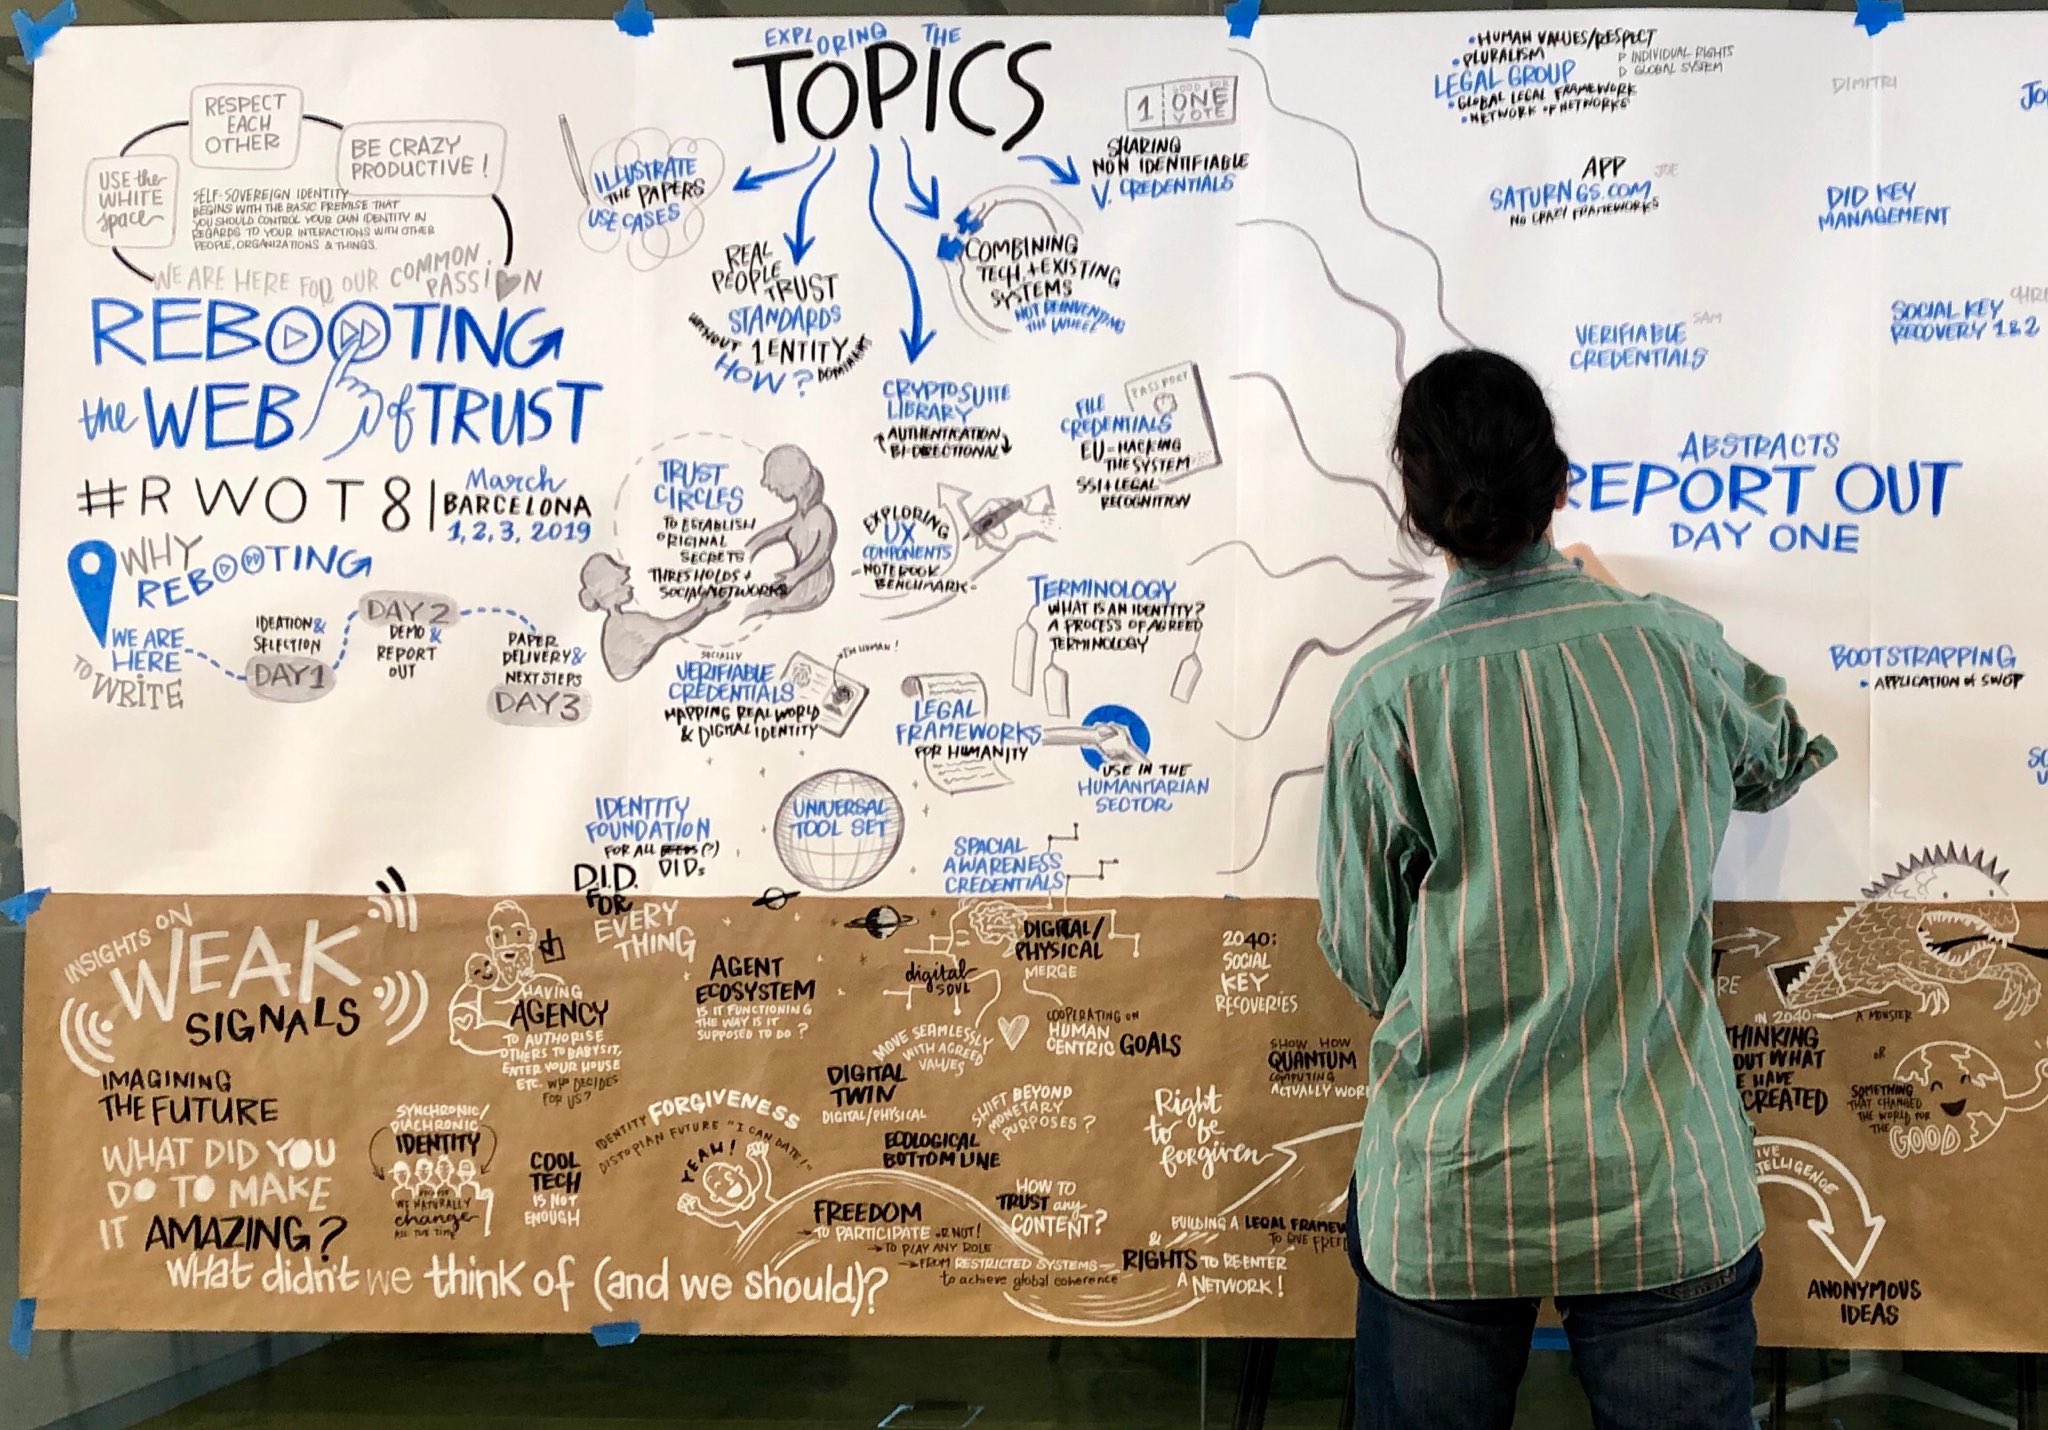 USE the
WHITE
space
RESPECT
EACH
OTHER
BE CRAZY
PRODUCTIVE!
SELF-SOVEREIGN IDENTITY
BEGINS WITH THE BASIC PREMISE THAT
YOU SHOULD CONTROL YOUR OWN IDENTITY IN
REGARDS TO YOUR INTERACTIONS WITH OTHER
PEOPLE, ORGANIZATIONS & THINGS.
WE ARE HERE FOR OUR COMMON
PASSION
REBOOTING
the WEB of TRUST
#RWOT8
March
BARCELONA
1, 2, 3, 2019
WHY
REBOOTING
WE ARE
HERE
TO WRITE
IDEATION &
SELECTION
DAY 1
DAY 2
DEMO &
REPORT
OUT
PAPER
DELIVERY &
NEXT STEPS
DAY 3
EXPLORING THE
TOPICS
ILLUSTRATE
THE PAPERS
USE CASES
REAL
PEOPLE
TRUST
STANDARDS
WITHOUT 1 ENTITY
DOMINANT
HOW?
COMBINING
TECH. + EXISTING
SYSTEMS
NOT REINVENTING
THE WHEEL
1 GOOD FOR
ONE
VOTE
SHARING
NON IDENTIFIABLE
V. CREDENTIALS
CRYPTOSUITE
LIBRARY
AUTHENTICATION
BI-DIRECTIONAL
PASSPORT
FILE
CREDENTIALS
EU=HACKING
THE SYSTEM
SSI + LEGAL
RECOGNITION
TRUST
CIRCLES
TO ESTABLISH
ORIGINAL
SECRETS
THRESHOLDS +
SOCIAL NETWORKS
EXPLORING
UX
COMPONENTS
-NOTEBOOK
BENCHMARK-
TERMINOLOGY
WHAT IS AN IDENTITY?
A PROCESS OF AGREED
TERMINOLOGY
SOCIALLY
VERIFIABLE
CREDENTIALS
MAPPING REAL WORLD
& DIGITAL IDENTITY
I'M HUMAN!
LEGAL
FRAMEWORKS
FOR HUMANITY
USE IN THE
HUMANITARIAN
SECTOR
IDENTITY
FOUNDATION
FOR ALL (?)
DIDs
UNIVERSAL
TOOL SET
SPACIAL
AWARENESS
CREDENTIALS
• HUMAN VALUES/RESPECT
• PLURALISM
▷ INDIVIDUAL RIGHTS
▷ GLOBAL SYSTEM
LEGAL GROUP
• GLOBAL LEGAL FRAMEWORK
• NETWORK OF NETWORKS
DIMITRI
APP
JOE
SATURNGS.COM
NO CRAZY FRAMEWORKS
DID KEY
MANAGEMENT
VERIFIABLE
SAM
CREDENTIALS
SOCIAL KEY
RECOVERY 1 & 2
ABSTRACTS
REPORT OUT
DAY ONE
BOOTSTRAPPING
• APPLICATION of SWOP
INSIGHTS ON
WEAK
SIGNALS
IMAGINING
THE FUTURE
WHAT DID YOU
DO TO MAKE
IT AMAZING?
What didn't we think of (and we should)?
D.I.D.
FOR
EVERY
THING
HAVING
AGENCY
TO AUTHORISE
OTHERS TO BABYSIT,
ENTER YOUR HOUSE
ETC. WHO DECIDES
FOR US?
AGENT
ECOSYSTEM
IS IT FUNCTIONING
THE WAY IS IT
SUPPOSED TO DO?
digital
SOUL
DIGITAL/
PHYSICAL
MERGE
MOVE SEAMLESSLY
WITH AGREED
VALUES
COOPERATING ON
HUMAN
CENTRIC GOALS
2040:
SOCIAL
KEY
RECOVERIES
SHOW HOW
QUANTUM
COMPUTING
ACTUALLY WOR
SYNCHRONIC/
DIACHRONIC
IDENTITY
WE NATURALLY
change
ALL THE TIME
COOL
TECH
IS NOT
ENOUGH
IDENTITY FORGIVENESS
DISTOPIAN FUTURE "I CAN DATE!"
YEAH!
DIGITAL
TWIN
DIGITAL/PHYSICAL
SHIFT BEYOND
MONETARY
PURPOSES?
ECOLOGICAL
BOTTOM LINE
Right
to be
forgiven
FREEDOM
→ TO PARTICIPATE OR NOT!
→ TO PLAY ANY ROLE
→ FROM RESTRICTED SYSTEMS
to achieve global coherence
HOW TO
TRUST any
CONTENT?
BUILDING A LEGAL FRAMEW
TO GIVE FREE
&
RIGHTS TO REENTER
A NETWORK!
IN 2040
THINKING
OUT WHAT
E HAVE
CREATED
A MONSTER
OR
SOMETHING
THAT CHANGED
THE WORLD FOR
THE GOOD
ANONYMOUS
IDEAS